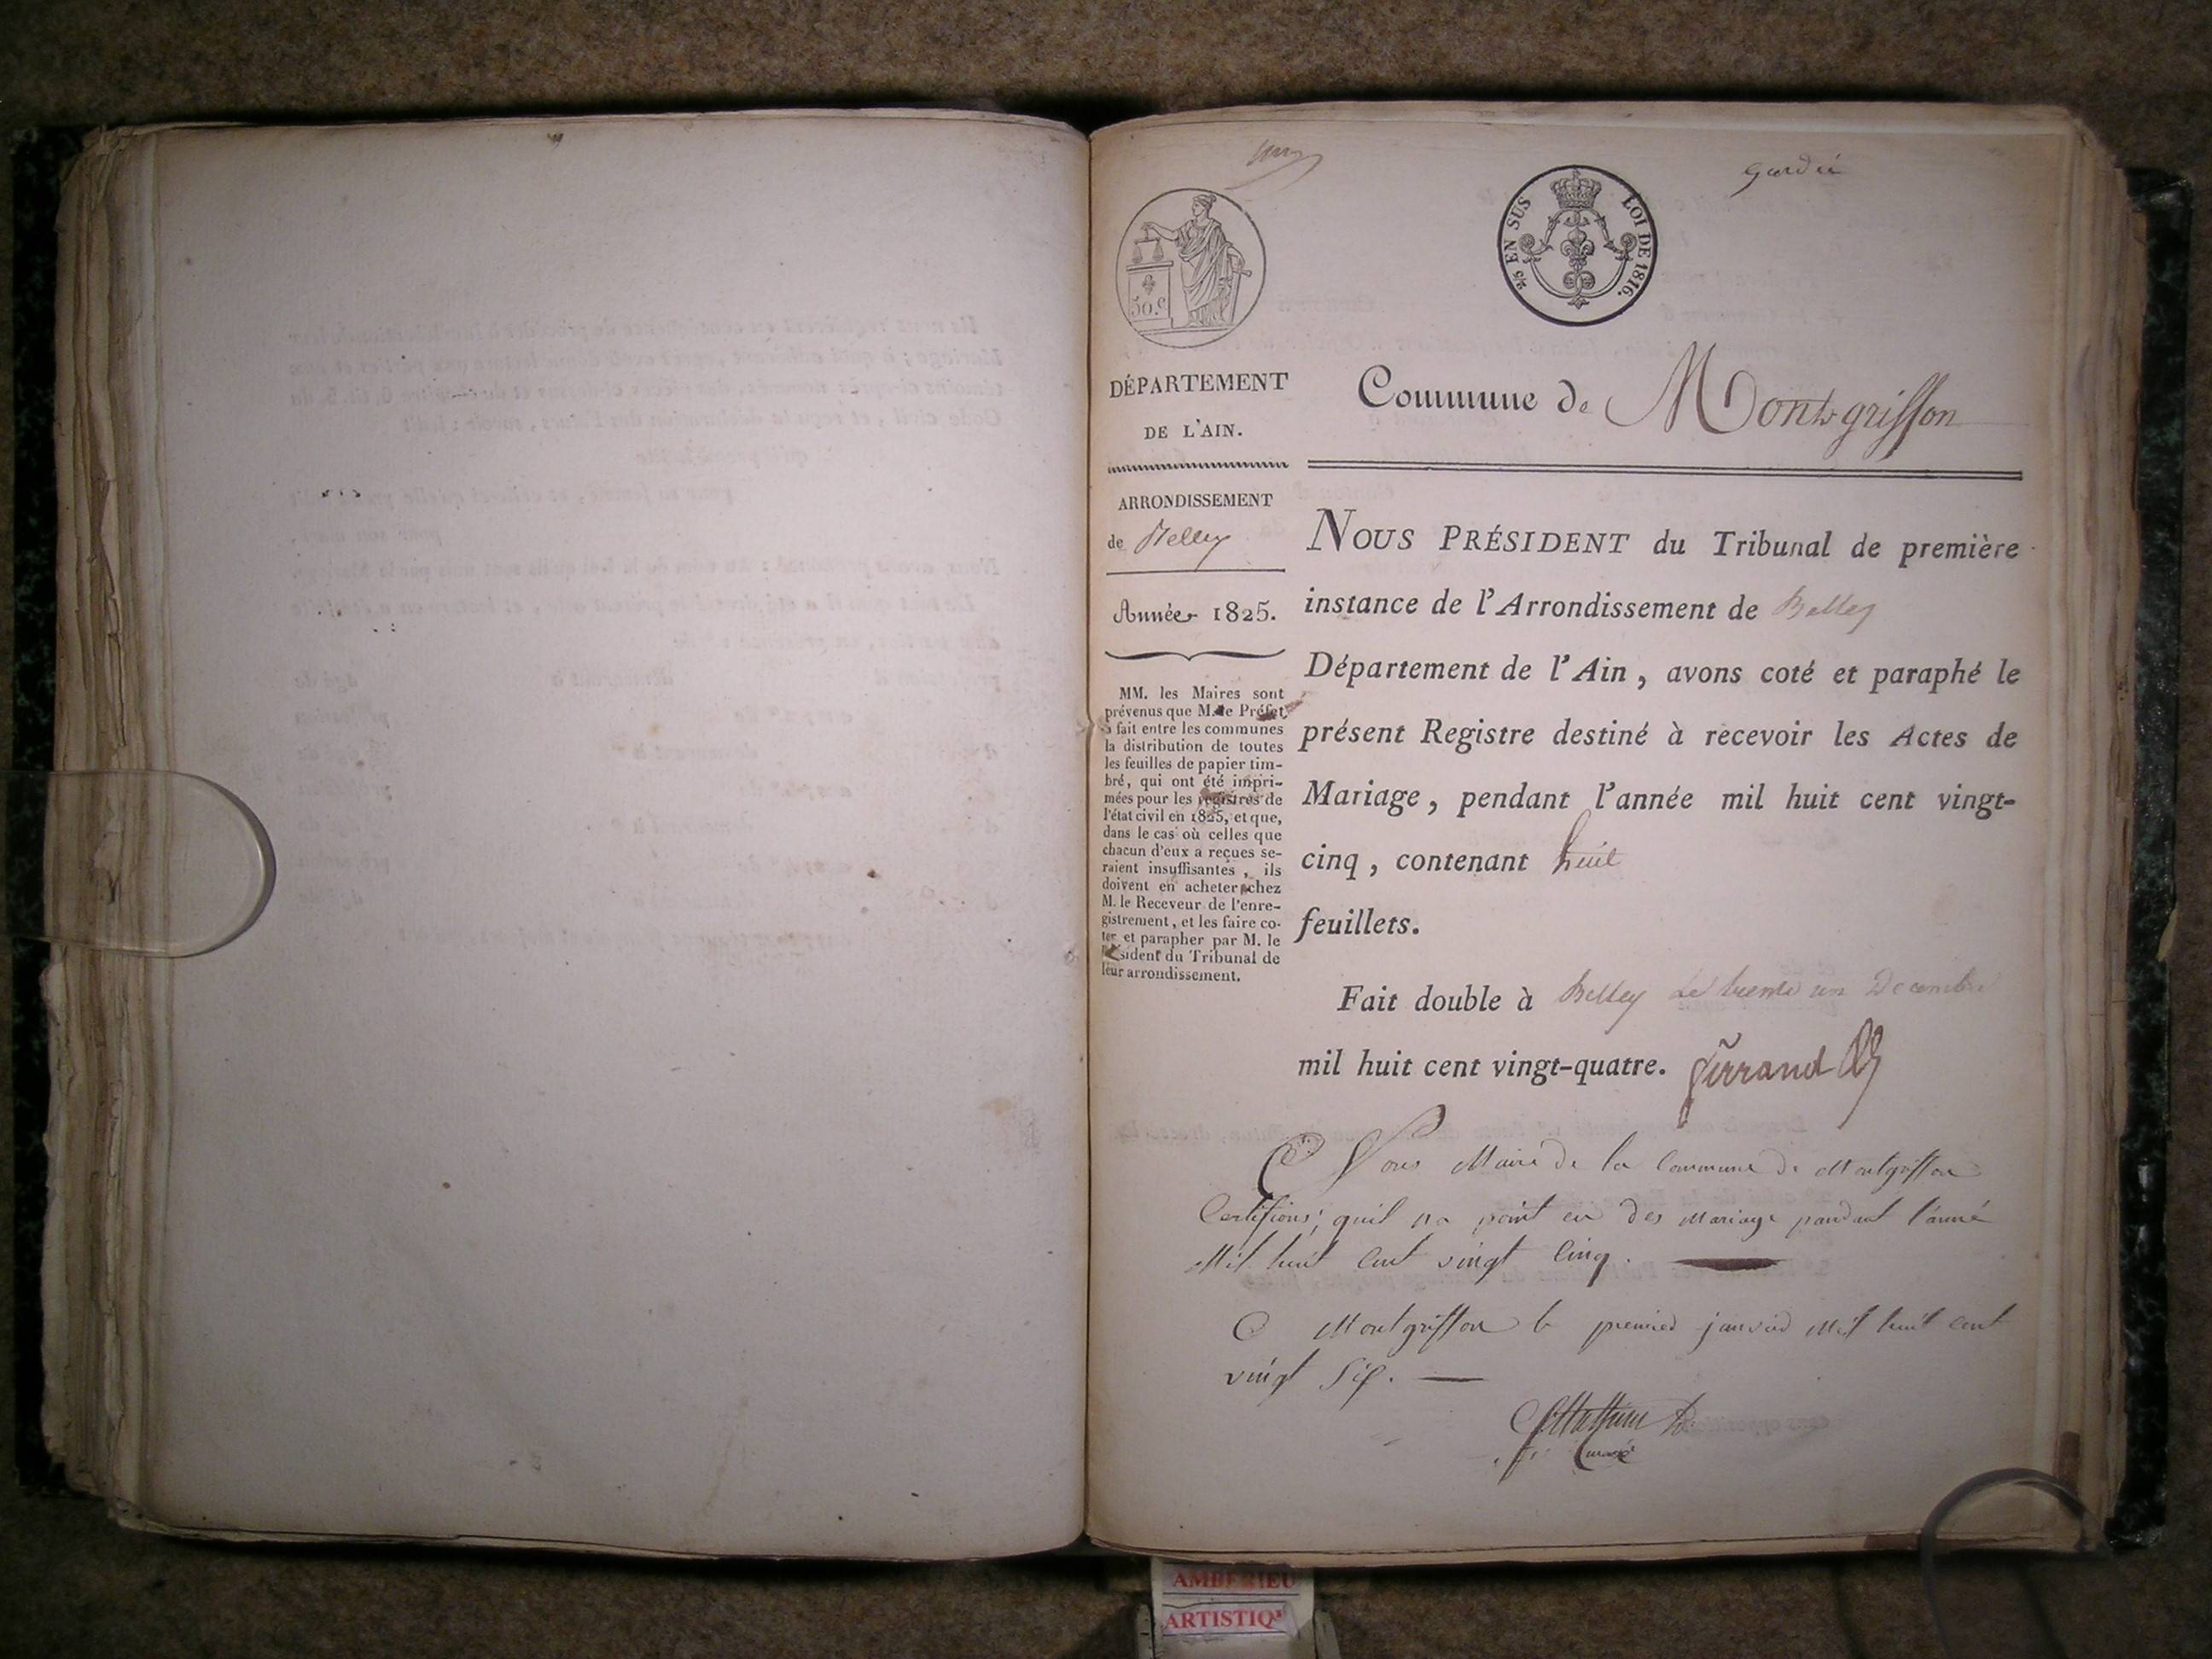 2/5 EN SUS LOI DE 1816.
50.c
DÉPARTEMENT
DE L'AIN.
ARRONDISSEMENT
de Belley
Année 1825.
MM. les Maires sont
prévenus que M. le Préfet
a fait entre les communes
la distribution de toutes
les feuilles de papier tim-
bré, qui ont été impri-
mées pour les registres de
l'état civil en 1825, et que,
dans le cas où celles que
chacun d'eux a reçues se-
raient insuffisantes, ils
doivent en acheter chez
M. le Receveur de l'enre-
gistrement, et les faire co-
ter et parapher par M. le
Président du Tribunal de
leur arrondissement.
Commune de Montgriffon
NOUS PRÉSIDENT du Tribunal de première
instance de l'Arrondissement de Belley
Département de l'Ain, avons coté et paraphé le
présent Registre destiné à recevoir les Actes de
Mariage, pendant l'année mil huit cent vingt-
cinq, contenant huit
feuillets.
Fait double à Belley le trente un Decembre
mil huit cent vingt-quatre. 
Nous Maire de la Commune de Montgriffon
Certifions, quil na point eu des Mariage pandant l'anné
Mil huit Cent vingt Cinq.
Montgriffon le premier janvier Mil huit cent
vingt Six.
AMBERIEU
ARTISTIQ